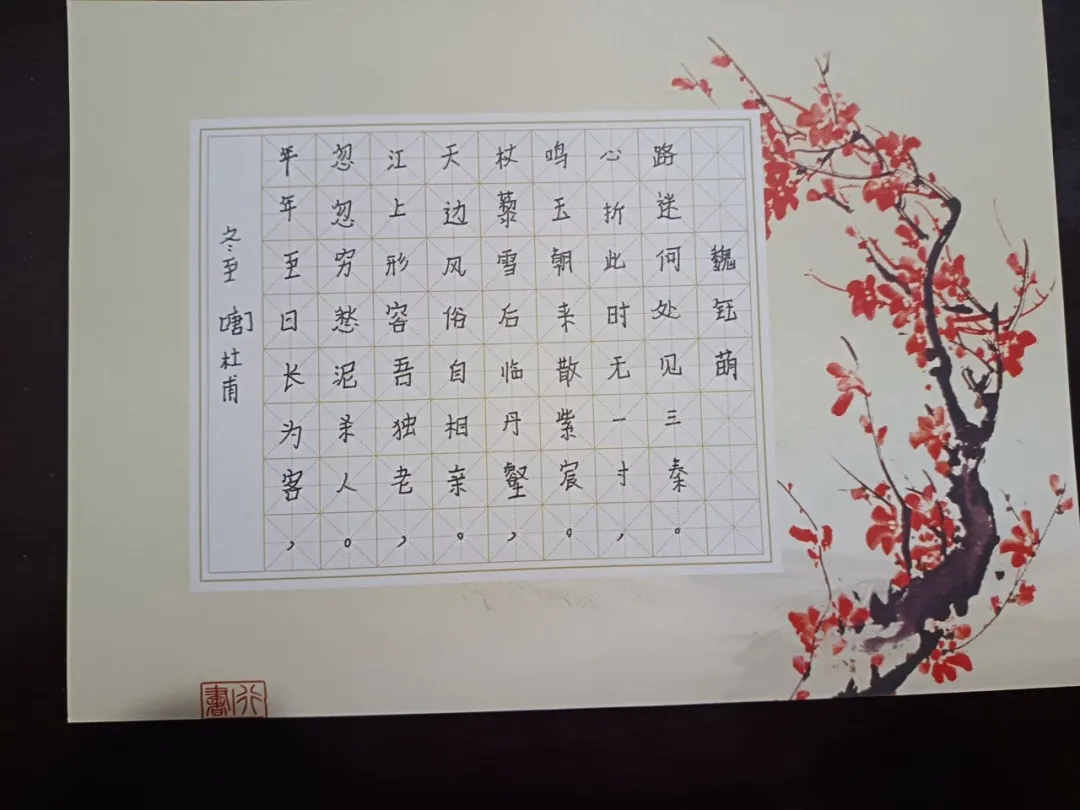 冬至 [唐] 杜甫
年年至日长为客，
忽忽穷愁泥杀人。
江上形容吾独老，
天边风俗自相亲。
杖藜雪后临丹壑，
鸣玉朝来散紫宸。
心折此时无一寸，
路迷何处见三秦。
魏钰萌